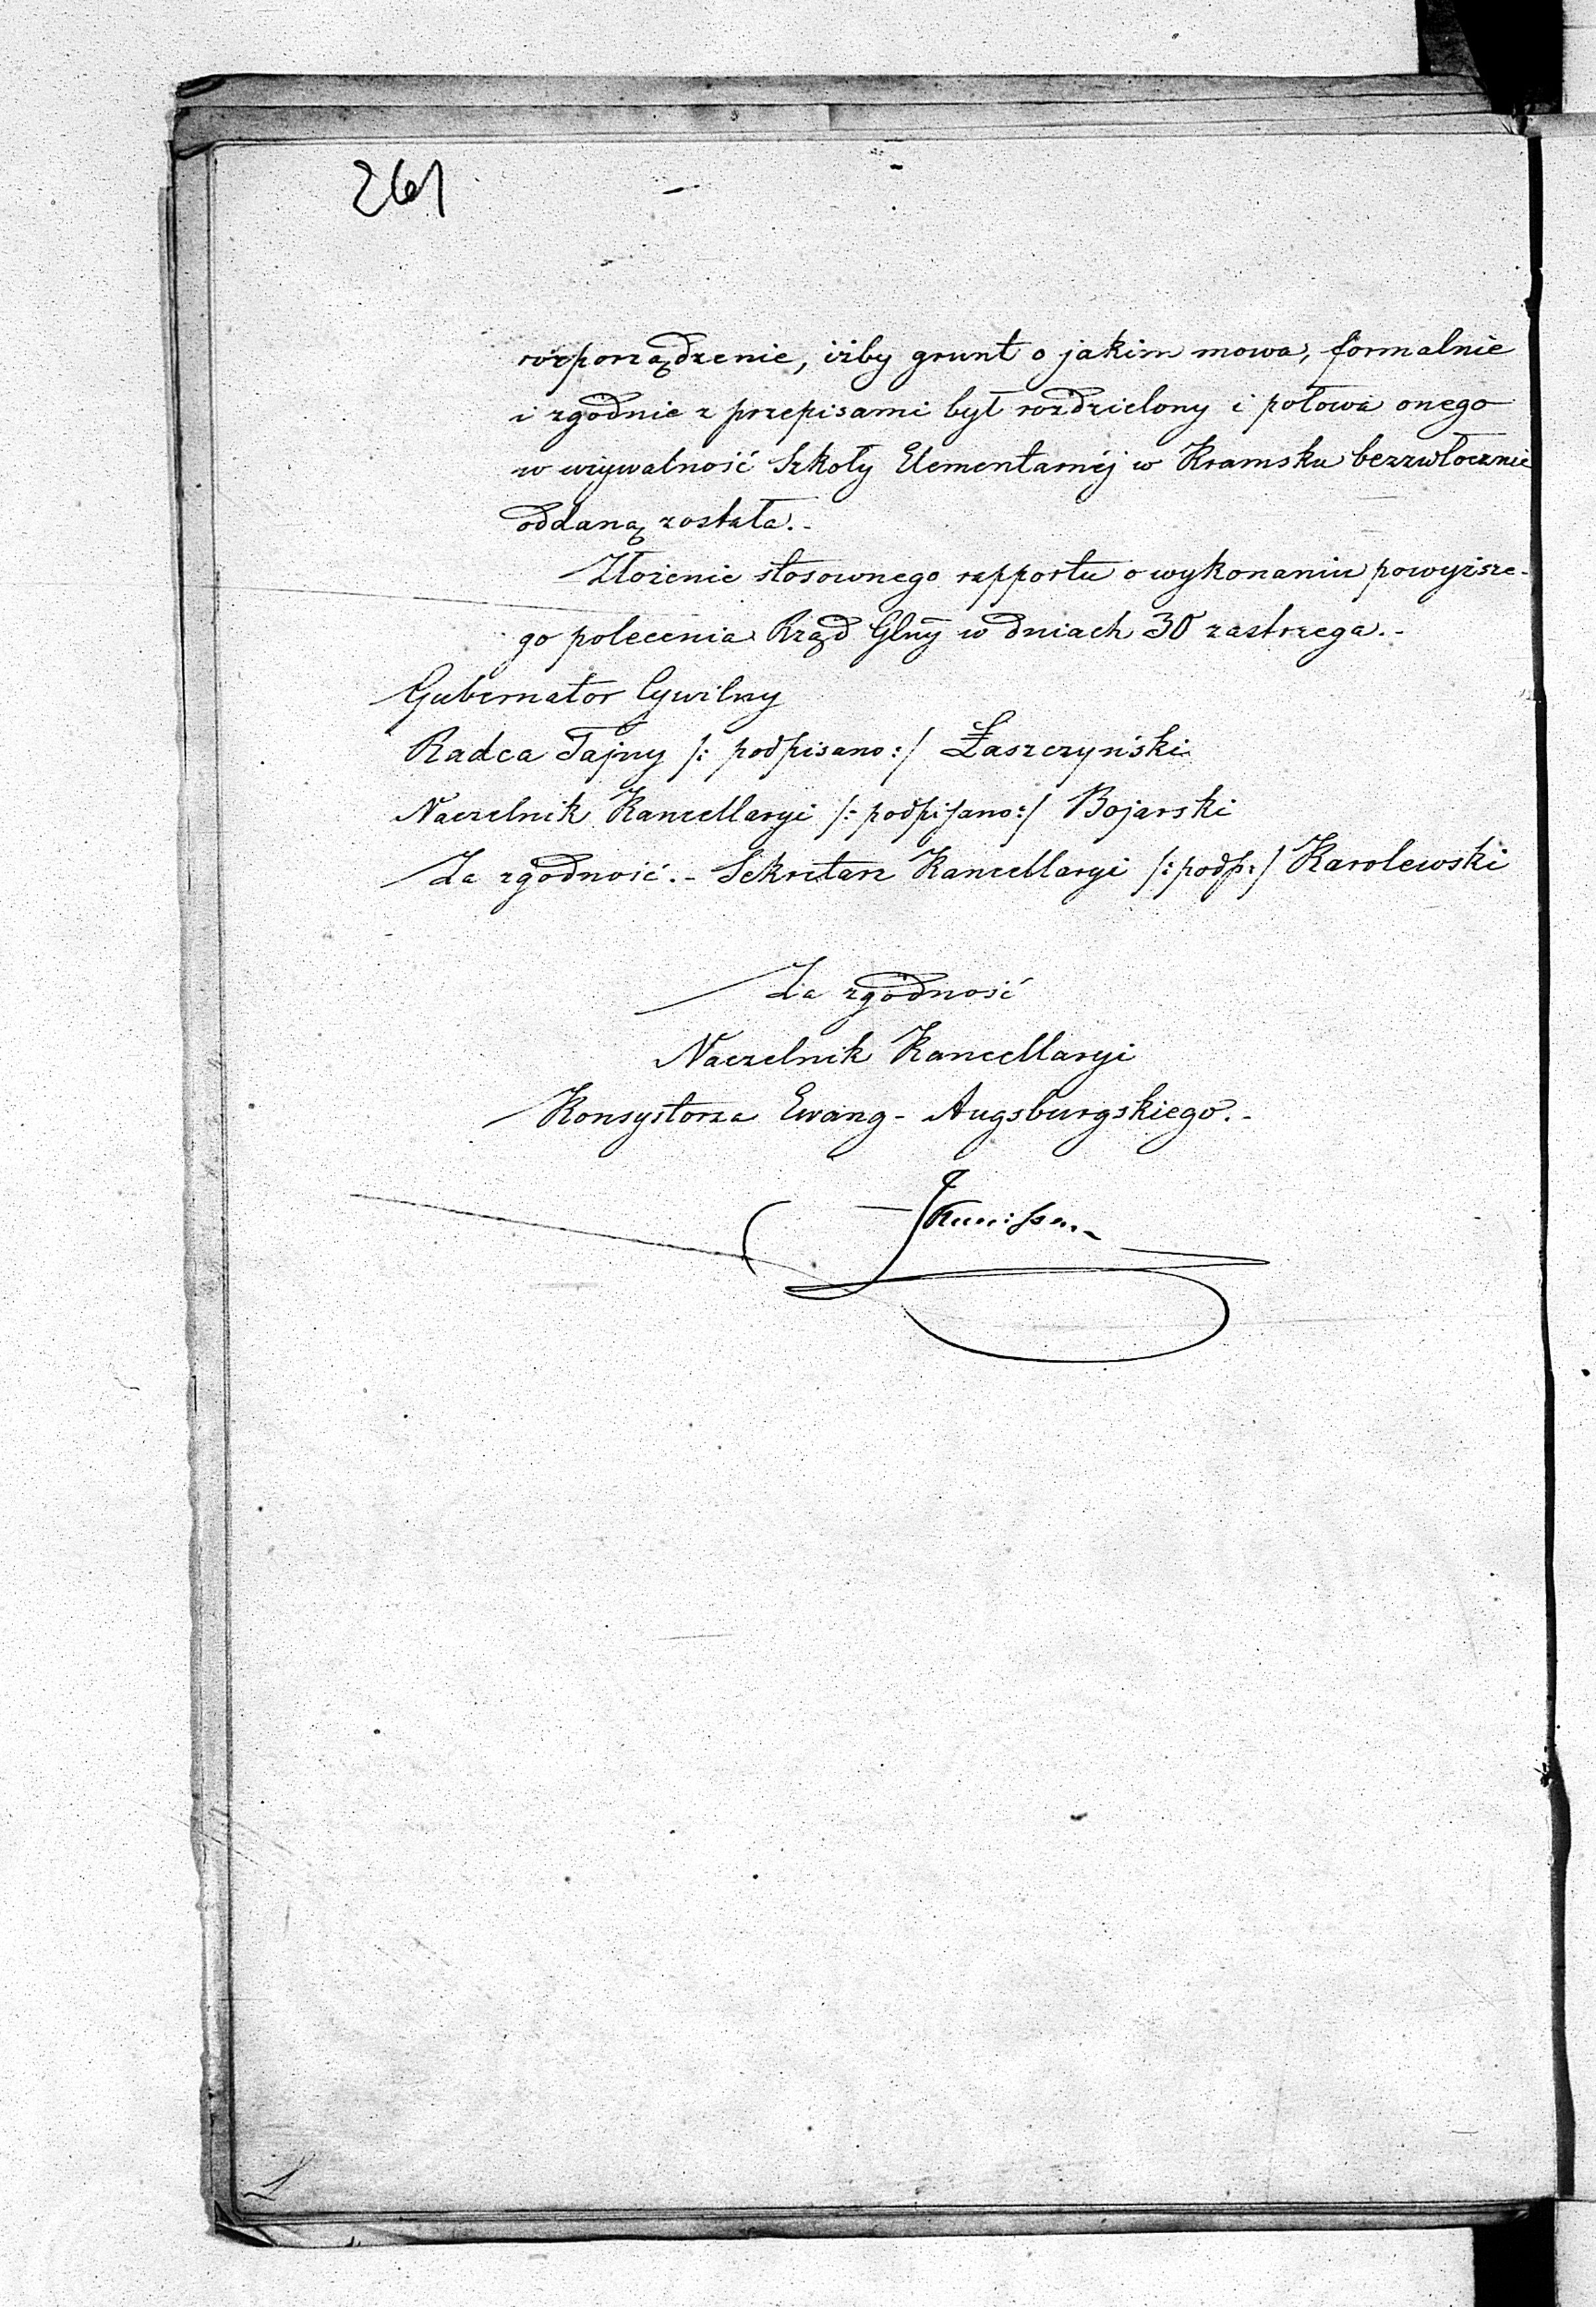 261
rozporządzenie, iżby grunt o jakim mowa, formalnie
i zgodnie z przepisami był rozdzielony i połowa onego
w używalność Szkoły Elementarnéj w Kramsku bezzwłocznie
oddaną została.-
Złożenie stosownego rapportu o wykonaniu powyższe-
go polecenia Rząd Glny w dniach 30 zastrzega.-
Gubernator Cywilny
Radca Tajny /: podpisano :/ Łaszczyński
Naczelnik Kancellaryi /: podpisano :/ Bojarski
Za zgodność.- Sekretarz Kancellaryi /: podp: / Karolewski
Za zgodność
Naczelnik Kancellaryi
Konsystorza Ewang- Augsburgskiego.-